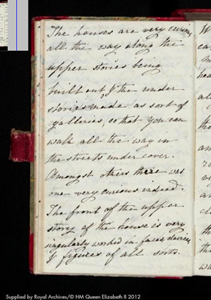 The houses are very curious
all the way along the
upper stories being
built out & the under
stories made as sort of
galleries so that you can
walk all the way in
the streets under cover.
Amongst others there was
one very curious indeed.
The front of the upper
story of the house is very
singularly worked in
& figures of all sorts.
Supplied by Royal Archives/© HM Queen Elizabeth II 2012